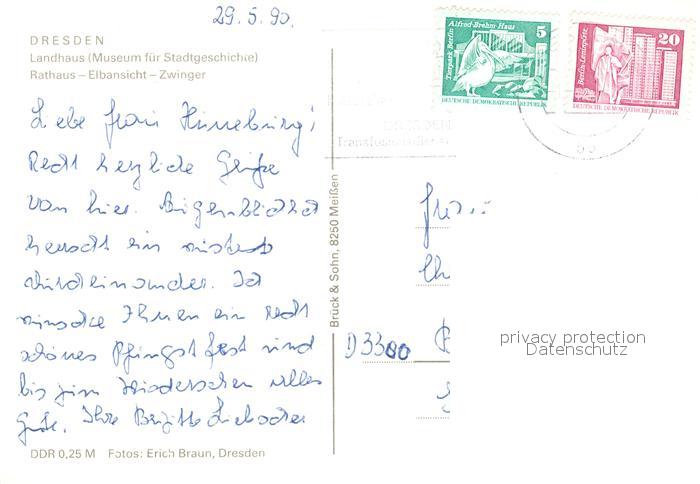 29.5.90.
DRESDEN
Landhaus (Museum für Stadtgeschichte)
Rathaus – Elbansicht – Zwinger
Liebe Frau
Recht herzliche Grüße
von hier. Augenblicklich
herrscht ein wüstes
durcheinander. Ich
wünsche Ihnen ein recht
schönes Pfingstfest und
bis zum Wiedersehen alles
Gute. Ihre Brigitte
DDR 0,25 M Fotos: Erich Braun, Dresden
Brück & Sohn, 8250 Meißen
Alfred-Brehm-Haus
Tierpark Berlin
5
DEUTSCHE DEMOKRATISCHE REPUBLIK
Berlin-Leninplatz
20
DEUTSCHE DEMOKRATISCHE REPUBLIK
DRESDEN
D 3300
privacy protection
Datenschutz